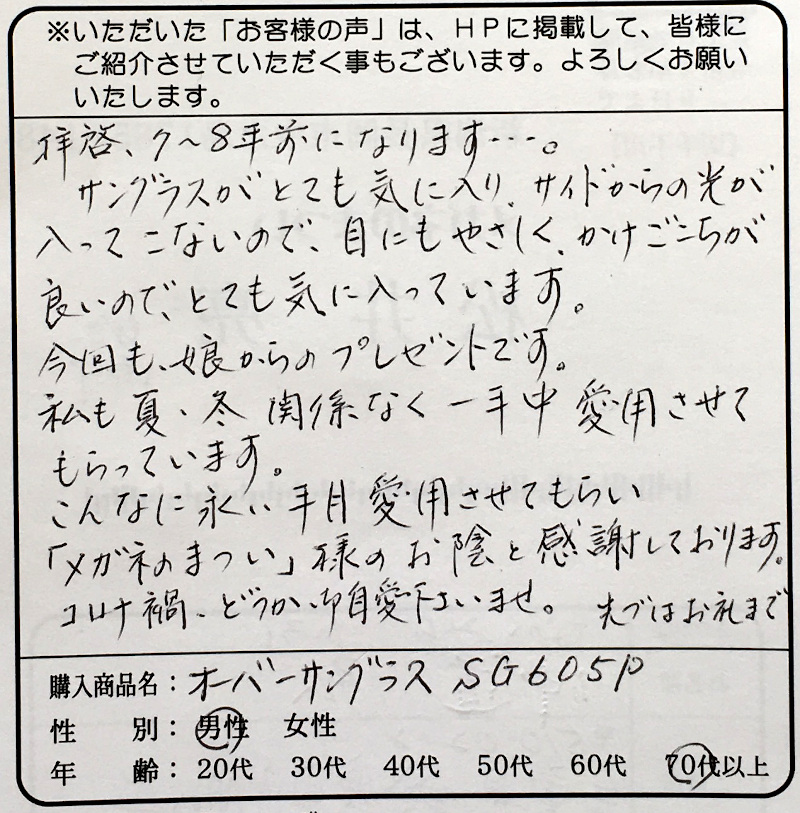 ※いただいた「お客様の声」は、HPに掲載して、皆様に
ご紹介させていただく事もございます。よろしくお願い
いたします。
拝啓、7〜8年前になります----。
サングラスがとても気に入り、サイドからの光が
入ってこないので、目にもやさしく、かけごこちが
良いので、とても気に入っています。
今回も、娘からのプレゼントです。
私も夏、冬関係なく一年中愛用させて
もらっています。
こんなに永い年月愛用させてもらい
「メガネのまつい」様のお陰と感謝しております。
コロナ禍、どうかご自愛下さいませ。 先づはお礼まで
購入商品名:オーバーサングラス SG605P
性 別:男性 女性
年 齢:20代 30代 40代 50代 60代 70代以上